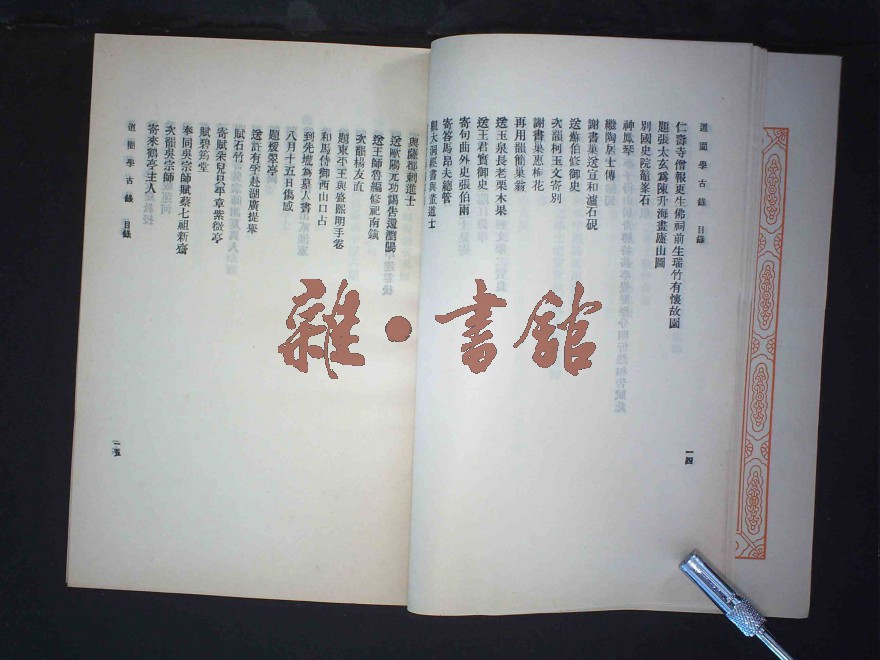 道園學古錄 目錄
一四
仁壽寺僧報更生佛祠前生瑞竹有懷故園
題張太玄為陳升海畫廬山圖
別國史院鼇峯石
神鳳琴
繼陶居士傳
謝書巢送宣和瀘石硯
送蘇伯修御史
次韻柯玉文寄別
謝書巢惠梅花
再用韻簡巢翁
送玉泉長老栗木果
送王君實御史
寄句曲外史張伯雨
寄答馬昂夫總管
大洞經書與董道士
與薩都剌進士
送歐陽元功謁告還瀏陽
送王師魯編修祀南鎮
次韻楊友直
題東平王與盛熙明手卷
和馬侍御西山口占
到先壠為墓人書
八月十五日傷感
題煖翠亭
送許有孚赴湖廣提舉
賦石竹
寄賦朵兒只平章紫微亭
賦碧筠堂
奉同吳宗師賦蔡七祖新齋
次韻吳宗師
寄來鶴亭主人
道園學古錄 目錄
一五
雜·書館